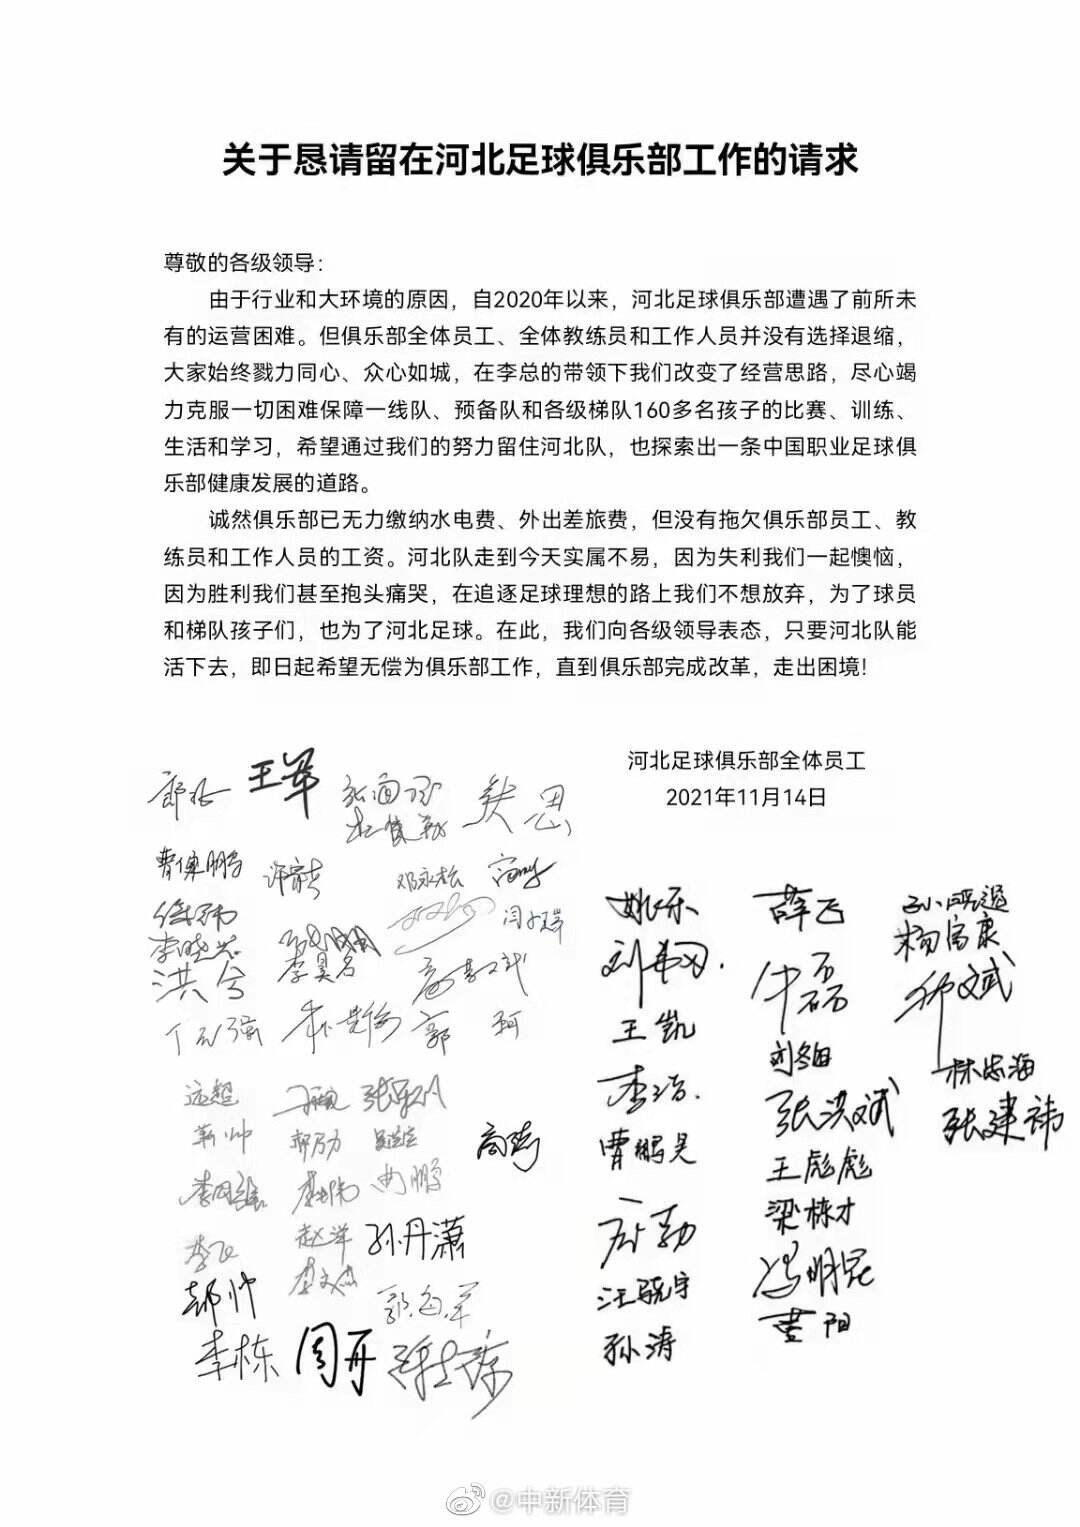 关于恳请留在河北足球俱乐部工作的请求
尊敬的各级领导：
由于行业和大环境的原因，自2020年以来，河北足球俱乐部遭遇了前所未
有的运营困难。但俱乐部全体员工、全体教练员和工作人员并没有选择退缩，
大家始终戮力同心、众心如城，在李总的带领下我们改变了经营思路，尽心竭
力克服一切困难保障一线队、预备队和各级梯队160多名孩子的比赛、训练、
生活和学习，希望通过我们的努力留住河北队，也探索出一条中国职业足球俱
乐部健康发展的道路。
诚然俱乐部已无力缴纳水电费、外出差旅费，但没有拖欠俱乐部员工、教
练员和工作人员的工资。河北队走到今天实属不易，因为失利我们一起懊恼，
因为胜利我们甚至抱头痛哭，在追逐足球理想的路上我们不想放弃，为了球员
和梯队孩子们，也为了河北足球。在此，我们向各级领导表态，只要河北队能
活下去，即日起希望无偿为俱乐部工作，直到俱乐部完成改革，走出困境！
河北足球俱乐部全体员工
2021年11月14日
王军
邓永松
姚乐
薛飞
杨富康
李昊名
洪兮
王凯
牛磊
郭珂
刘冬田
林忠海
远超
李浩
张洪斌
张建祎
靳帅
郝乃力
曹鹏昊
王彪彪
冉鹏
梁栋才
李飞
赵洋
孙丹潇
李文杰
冯明冠
郝帅
汪骁宇
董阳
李栋
周开
孙涛
@中新体育